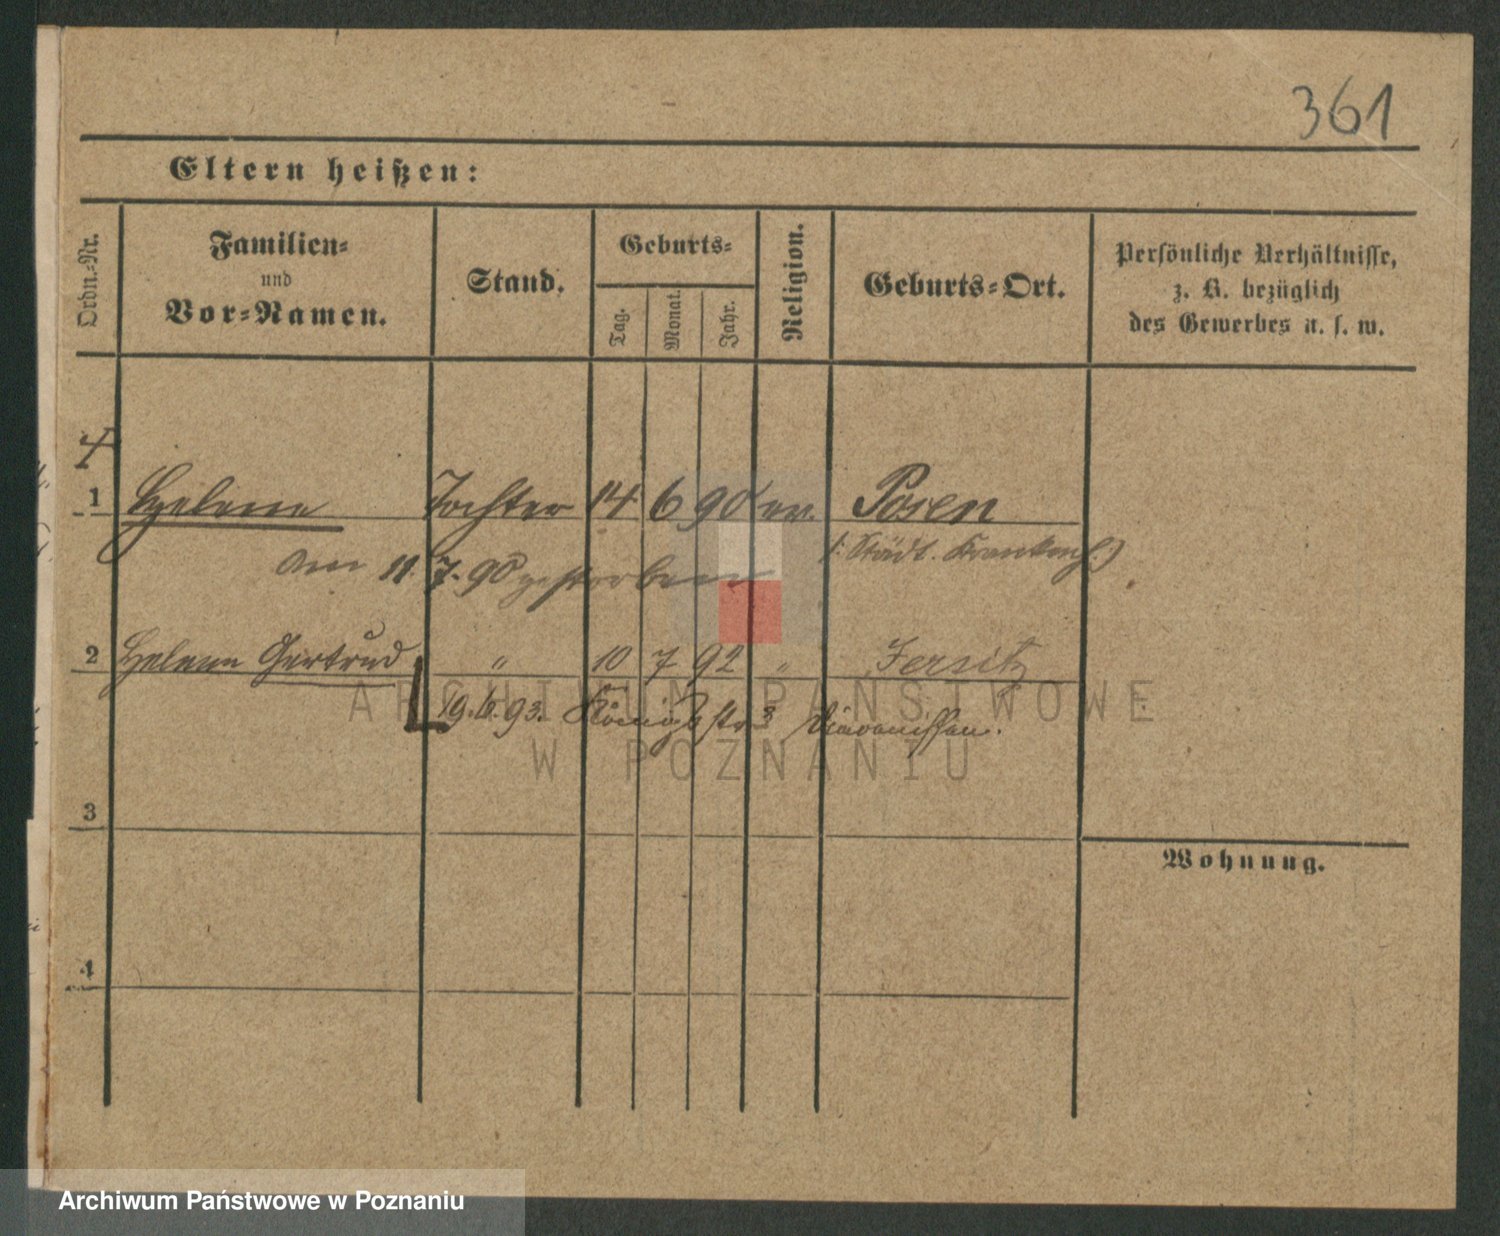 361
Eltern heißen:
Ordn.-Nr.
Familien-
und
Vor-Namen.
Stand.
Geburts-
Tag.
Monat.
Jahr.
Religion.
Geburts-Ort.
Persönliche Verhältnisse,
z. B. bezüglich
des Gewerbes u. s. w.
1 Helene Tochter 14 6 90 ev. Posen
(: Städt. Krankenh:)
am 11. 7. 90 gestorben
2 Helene Gertrud " 10 7 92 " Jersitz
19. 6. 93. Königsstr 3 Diaconissen.
3
Wohnung.
4
ARCHIWUM PAŃSTWOWE
W POZNANIU
Archiwum Państwowe w Poznaniu